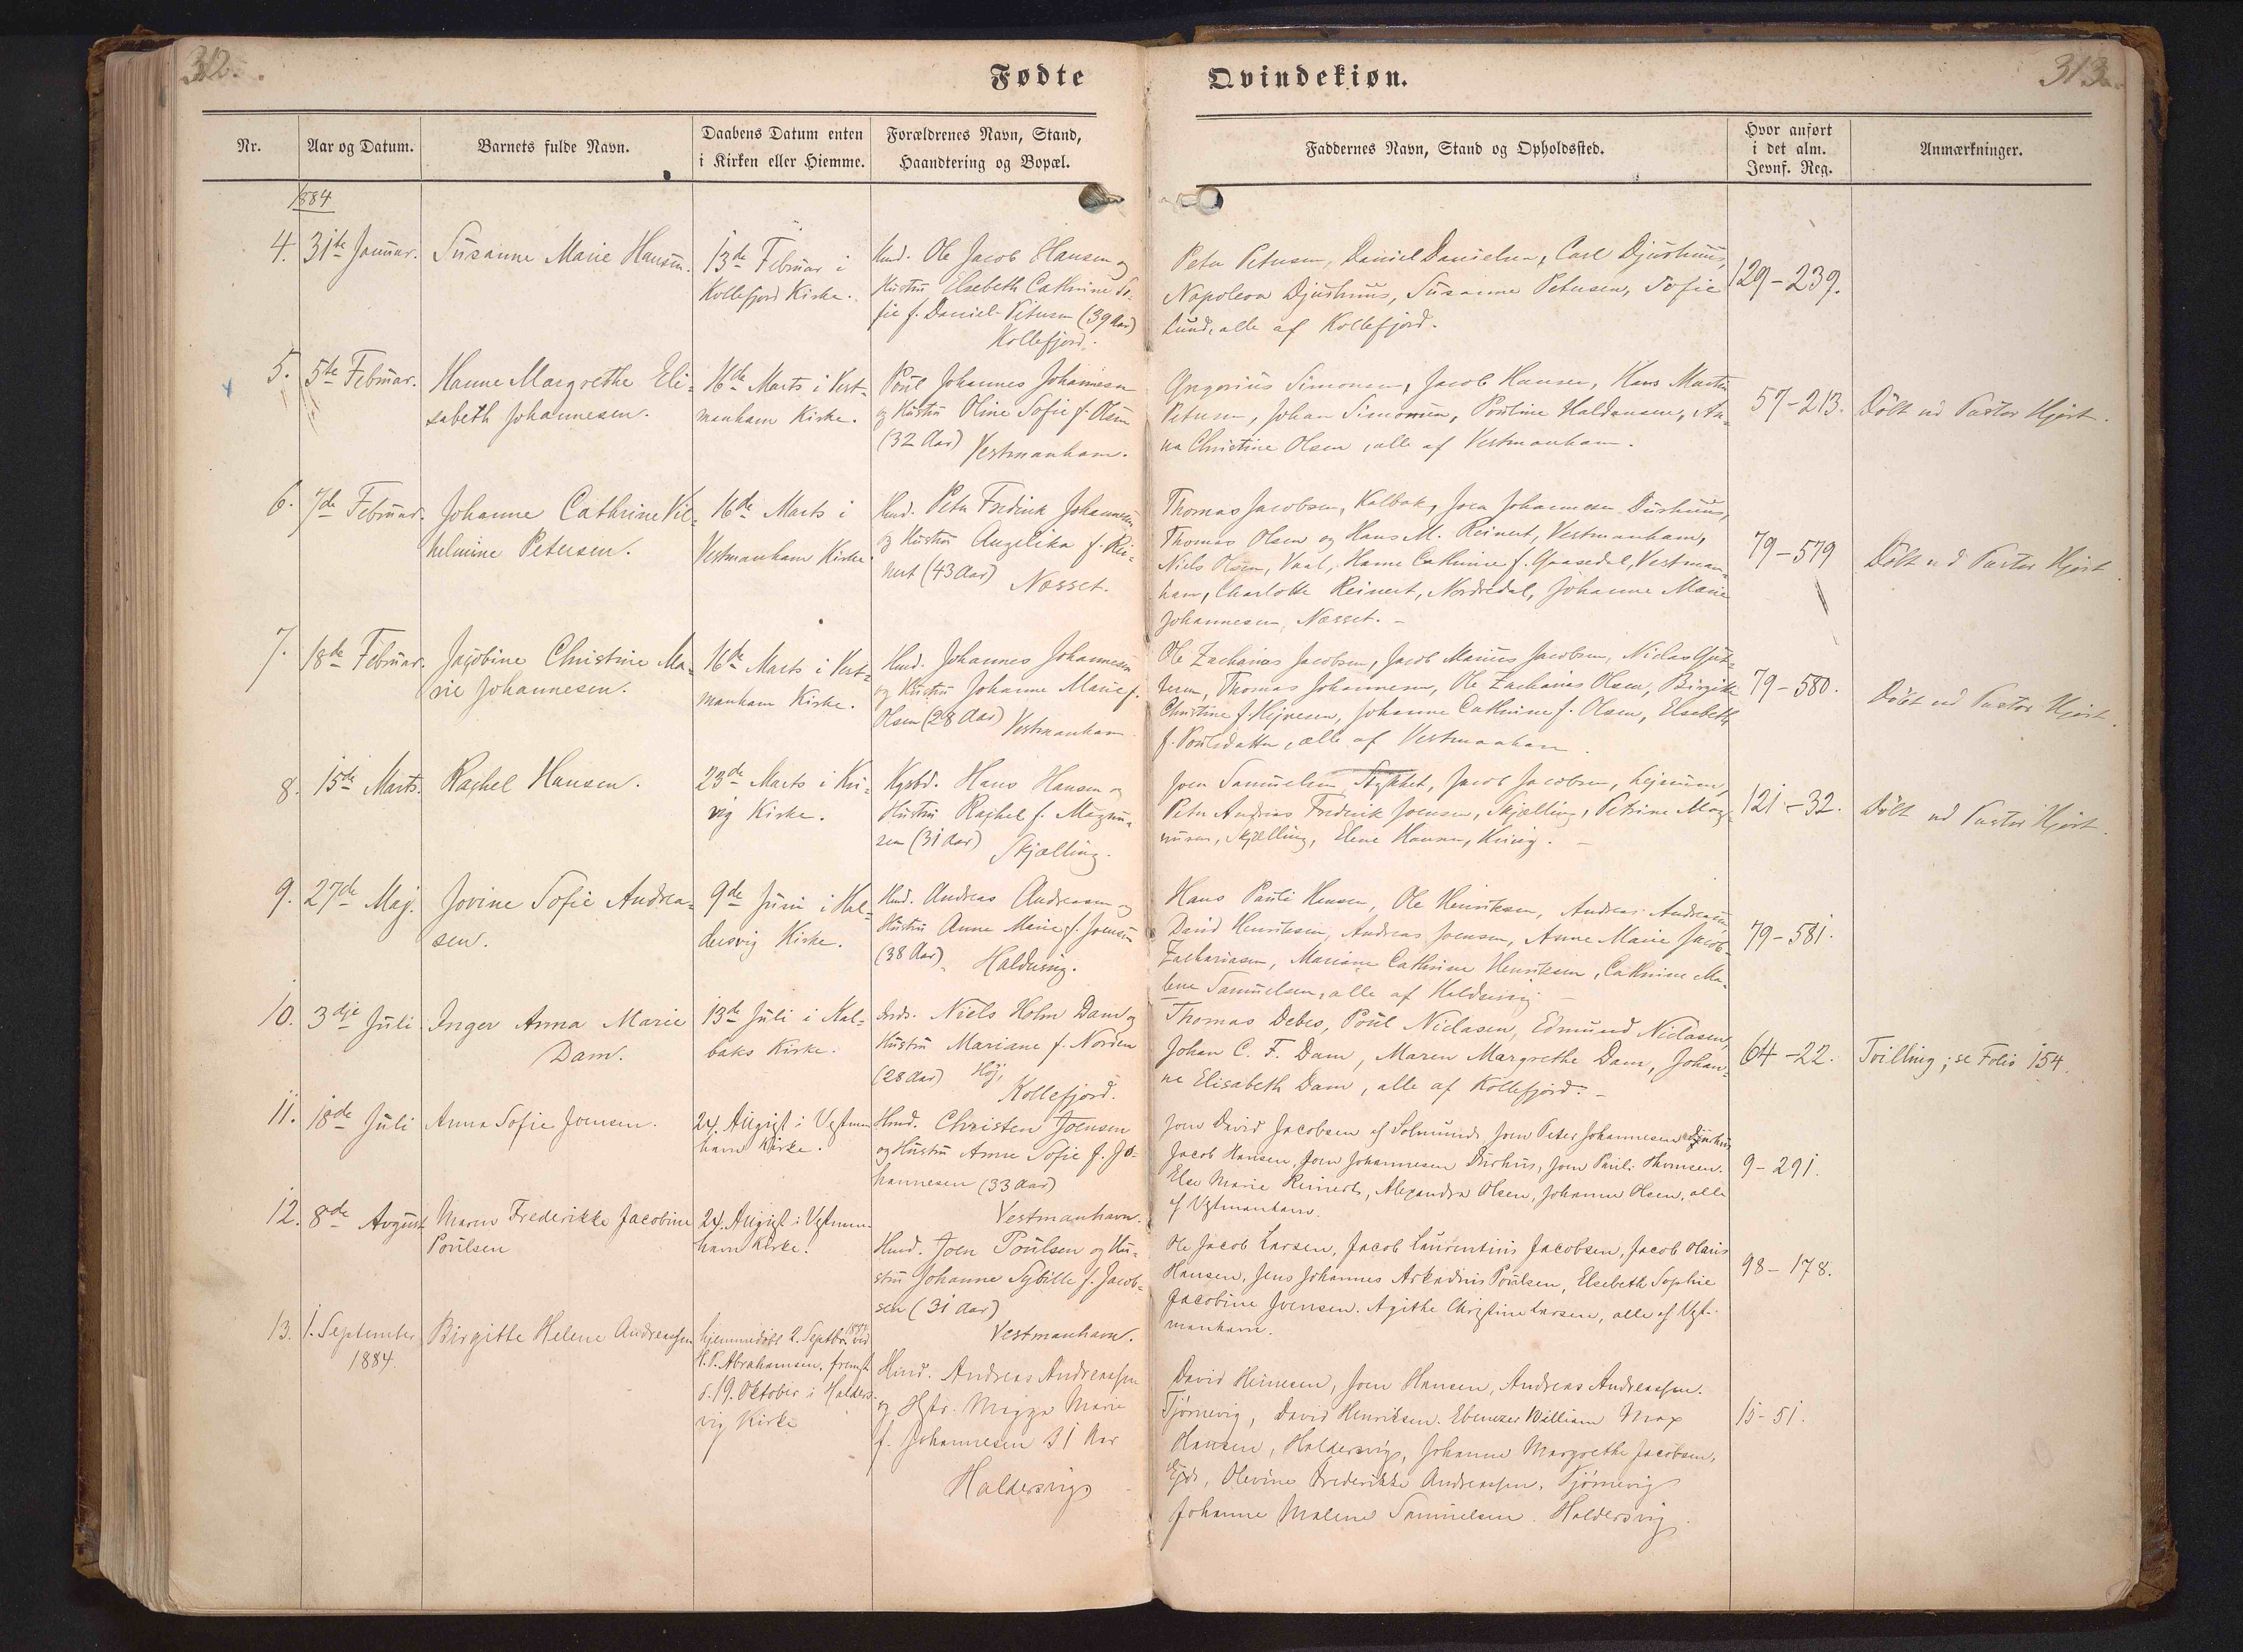 312.
313.
Fødte
Qvindekiøn.
Nr.
Aar og Datum.
Barnets fulde Navn.
Daabens Datum enten
i Kirken eller Hiemme.
Forældrenes Navn, Stand,
Haandtering og Bopæl.
Faddernes Navn, Stand og Opholdssted.
Hvor anført
i det alm.
Jevnf. Reg.
Anmærkninger.
1884
4.
31te Januar.
Susanne Marie Hansen.
13de Februar i
Kollefjord Kirke.
Hmd. Ole Jacob Hansen og
Hustru Elsebeth Cathrine So-
fie f. Daniel-Petersen (39 Aar)
Kollefjord.
Peter Petersen, Daniel Danielsen, Carl Djurhuus,
Napoleon Djurhuus, Susanne Petersen, Sofie
Lund, alle af Kollefjord.
129-239.
5.
5te Februar.
Hanne Margrethe Eli-
sabeth Johannesen.
16de Marts i Vest-
manhavn Kirke.
Poul Johannes Johannesen
og Hustru Oline Sofie f. Olsen
(32 Aar) Vestmanhavn.
Gregorius Simonsen, Jacob Hansen, Hans Martin
Petersen, Johan Simonsen, Pouline Haldansen, An-
na Christine Olsen, alle af Vestmanhavn.
57-213.
Døbt ved Pastor Hjort.
6.
7de Februar.
Johanne Cathrine Vil-
helmine Petersen.
16de Marts i
Vestmanhavn Kirke
Hmd. Peter Fredrik Johannesen
og Hustru Angelika f. Rei-
nert (43 Aar) Næsset.
Thomas Jacobsen, Kalbak, Joen Johannesen Durhuus,
Thomas Olsen og Hans M. Reinert, Vestmanhavn,
Niels Olsen, Vaal, Hanne Cathrine f. Gaasedal, Vestman-
havn, Charlotte Reinert, Nordredal, Johanne Marie
Johannesen, Næsset. -
79-579
Døbt ved Pastor Hjort
7.
18de Februar.
Jacobine Christine Ma-
rie Johannesen.
16de Marts i Vest-
manhavn Kirke.
Hmd. Johannes Johannesen
og Hustru Johanne Marie f.
Olsen (28 Aar) Vestmanhavn
Ole Zacharias Jacobsen, Jacob Marius Jacobsen, Niclas Gut-
tesen, Thomas Johannesen, Ole Zacharias Olsen, Birgitte
Christine f. Hejnesen, Johanne Cathrine f. Olsen, Elsebeth
f. Poulsdatter, alle af Vestmanhavn.
79-580.
Døbt ved Pastor Hjort.
8.
15de Marts.
Rachel Hansen.
23de Marts i Kvi-
vig Kirke.
Kgsbd. Hans Hansen og
Hustru Rachel f. Magnu-
sen (31 Aar) Skjælling.
Joen Samuelsen Stykket, Jacob Jacobsen, Lejnum,
Peter Andreas Fredrik Joensen, Skjælling, Petrine Mag-
nusen, Skjælling, Elene Hansen, Kvivig. -
121-32.
Døbt ved Pastor Hjort.
9.
27de Maj.
Jovine Sofie Andrea-
sen.
9de Juni i Hal-
dersvig Kirke.
Hmd. Andreas Andreasen og
Hustru Anne Marie f. Joensen
(38 Aar). Haldersvig.
Hans Pauli Hansen, Ole Henriksen, Andreas Andreasen,
David Henriksen, Andreas Joensen, Anne Marie Jacob-
Zachariasen, Mariane Cathrine Henriksen, Cathrine Ma-
lene Samuelsen, alle af Haldersvig -
79-581.
10.
3dje Juli
Inger Anna Marie
Dam.
13de Juli i Kal-
baks Kirke.
Niels Holm Dam og
Hustru Mariane f. Norden
(28 Aar) Høj,
Kollefjord.
Thomas Debes, Poul Niclasen, Edmund Niclasen,
Johan C. F. Dam, Maren Margrethe Dam, Johan-
ne Elisabeth Dam, alle af Kollefjord. -
64-22.
Tvilling; se Folio 154.
11.
18de Juli
Anna Sofie Joensen.
24. August i Vestman
havn Kirke.
Hmd. Christen Joensen
og Hustru Anne Sofie f. Jo-
hannesen (33 Aar)
Vestmanhavn.
Joen David Jacobsen af Solmunde Joen Peter Johannesen Djurhus
Jacob Hansen, Joen Johannesen Durhus, Joen Pauli Thomsen.
Else Marie Reinerts, Alexandra Olsen, Johanne Olsen, alle
af Vestmanhavn.
9-291.
12.
8de August
Maren Frederikke Jacobine
Poulsen
24. August i Vestman-
havn Kirke.
Hmd. Joen Poulsen og Hu-
stru Johanne Sybille f. Jacob-
sen (31 Aar)
Vestmanhavn.
Ole Jacob Larsen, Jacob Laurentius Jacobsen, Jacob Olaus
Hansen, Jens Johannes Arkadius Poulsen, Elsebeth Sophie
Jacobine Joensen. Agithe Christine Larsen, alle af Vest-
manhavn.
98-178.
13.
1. September
1884.
Birgitte Helene Andreassen
hjemmedøbt 2. Septbr. 1884 ved
H. P. Abrahamsen, fremst.
d. 19. Oktober i Halders-
vig Kirke
Hmd. Andreas Andreassen
og Hstr. Migga Marie
f. Johannesen 31 Aar
Haldersvig
David Heinesen, Joen Hansen, Andreas Andreassen.
Tjørnevig, David Henriksen. Ebenezer William Max
Hansen, Haldersvig, Johanne Margrethe Jacobsen,
Ejde, Olevine Frederikke Andreassen, Tjørnevig
Johanne Malene Samuelsen. Haldersvig.
15-51.